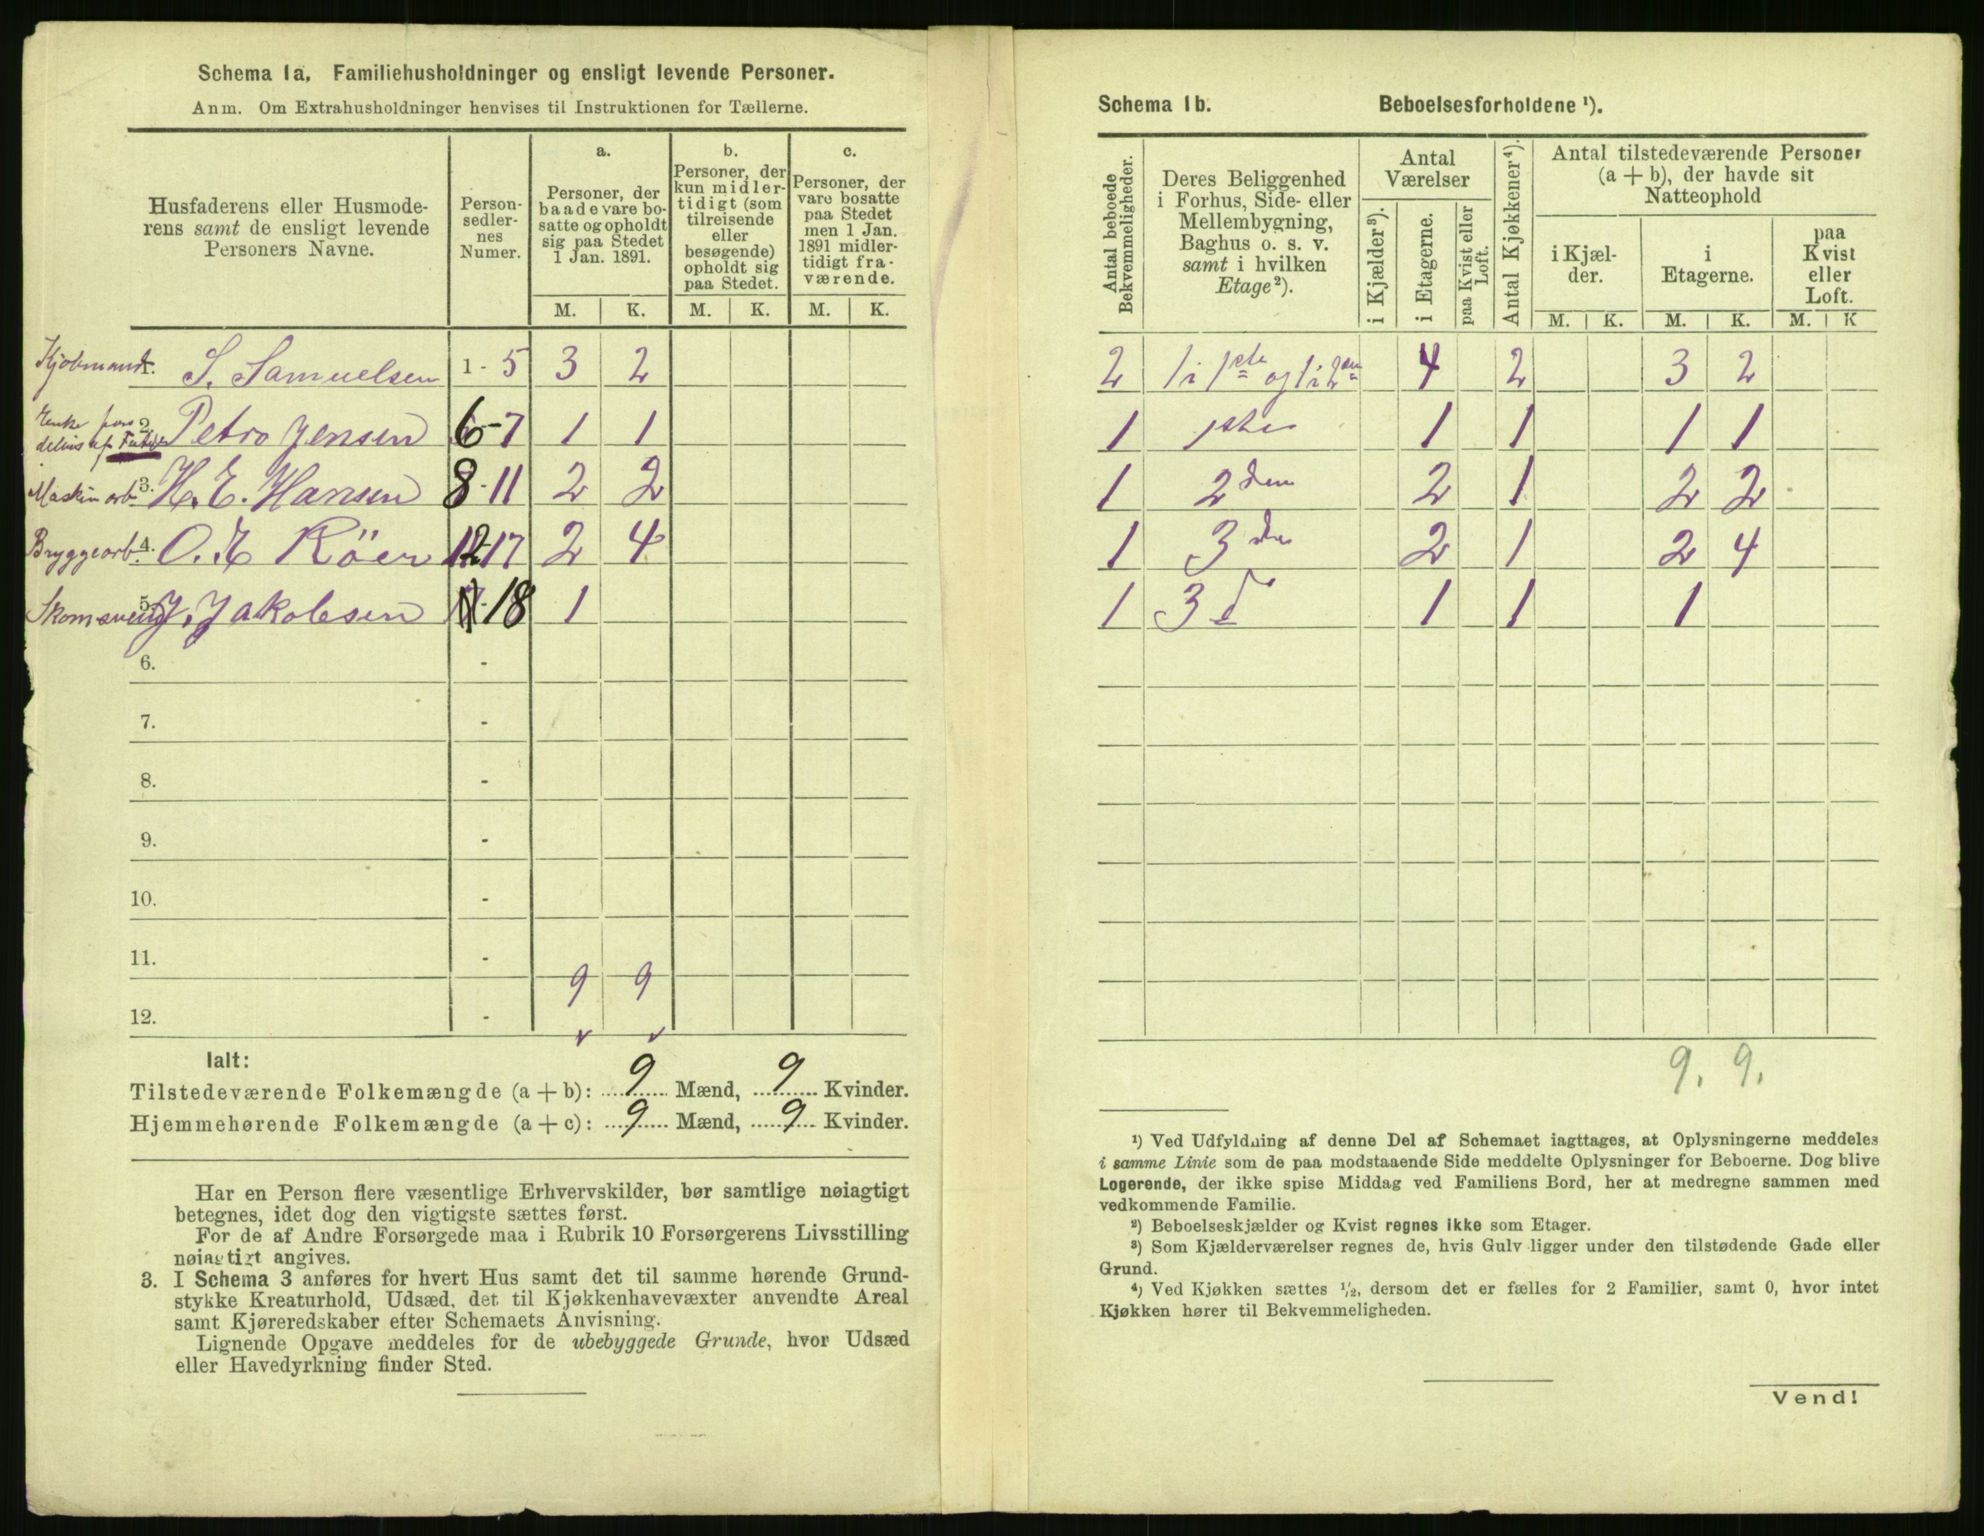 Schema 1a. Familiehusholdninger og ensligt levende Personer.
Anm. Om Extrahusholdninger henvises til Instruktionen for Tællerne.
Husfaderens eller Husmode-
rens samt de ensligt levende
Personers Navne.
Person-
sedler-
nes
Numer.
a.
Personer, der
baade vare bo-
satte og opholdt
sig paa Stedet
1 Jan. 1891.
b.
Personer, der
kun midler-
tidigt (som
tilreisende
eller
besøgende)
opholdt sig
paa Stedet.
c.
Personer, der
vare bosatte
paa Stedet
men 1 Jan.
1891 midler-
tidigt fra-
værende.
M. K. M. K. M. K.
Kjøbmand 1. S. Samuelsen 1 - 5 3 2
Enke 2. Petro Jensen 6 - 7 1 1
Maskinarb. 3. H. E. Hansen 8 - 11 2 2
Bryggearb. 4. O. E Röer 12 - 17 2 4
Skomsvend 5. J. Jakobsen - 18 1
6. -
7. -
8. -
9. -
10. -
11. -
9 9
12. -
Ialt:
Tilstedeværende Folkemængde (a + b): 9 Mænd, 9 Kvinder.
Hjemmehørende Folkemængde (a + c): 9 Mænd, 9 Kvinder.
Har en Person flere væsentlige Erhvervskilder, bør samtlige nøiagtigt
betegnes, idet dog den vigtigste sættes først.
For de af Andre Forsørgede maa i Rubrik 10 Forsørgerens Livsstilling
nøiagtigt angives.
3. I Schema 3 anføres for hvert Hus samt det til samme hørende Grund-
stykke Kreaturhold, Udsæd, det til Kjøkkenhavevæxter anvendte Areal
samt Kjøreredskaber efter Schemaets Anvisning.
Lignende Opgave meddeles for de ubebyggede Grunde, hvor Udsæd
eller Havedyrkning finder Sted.
Schema 1b. Beboelsesforholdene ¹).
Antal beboede
Bekvemmeligheder.
Deres Beliggenhed
i Forhus, Side- eller
Mellembygning,
Baghus o. s. v.
samt i hvilken
Etage ²).
Antal
Værelser
i Kjælder ³).
i Etagerne.
paa Kvist eller
Loft.
Antal Kjøkkener ⁴).
Antal tilstedeværende Personer
(a + b), der havde sit
Natteophold
i Kjæl-
der.
i
Etagerne.
paa
Kvist
eller
Loft.
M. K. M. K. M. K
2 1 i 1ste og 1 i 2en 4 2 3 2
1 1ste 1 1 1 1
1 2den 2 1 2 2
1 3die 2 1 2 4
1 3 d 1 1 1
9. 9.
¹) Ved Udfyldning af denne Del af Schemaet iagttages, at Oplysningerne meddeles
i samme Linie som de paa modstaaende Side meddelte Oplysninger for Beboerne. Dog blive
Logerende, der ikke spise Middag ved Familiens Bord, her at medregne sammen med
vedkommende Familie.
²) Beboelseskjælder og Kvist regnes ikke som Etager.
³) Som Kjælderværelser regnes de, hvis Gulv ligger under den tilstødende Gade eller
Grund.
⁴) Ved Kjøkken sættes ½, dersom det er fælles for 2 Familier, samt 0, hvor intet
Kjøkken hører til Bekvemmeligheden.
Vend!